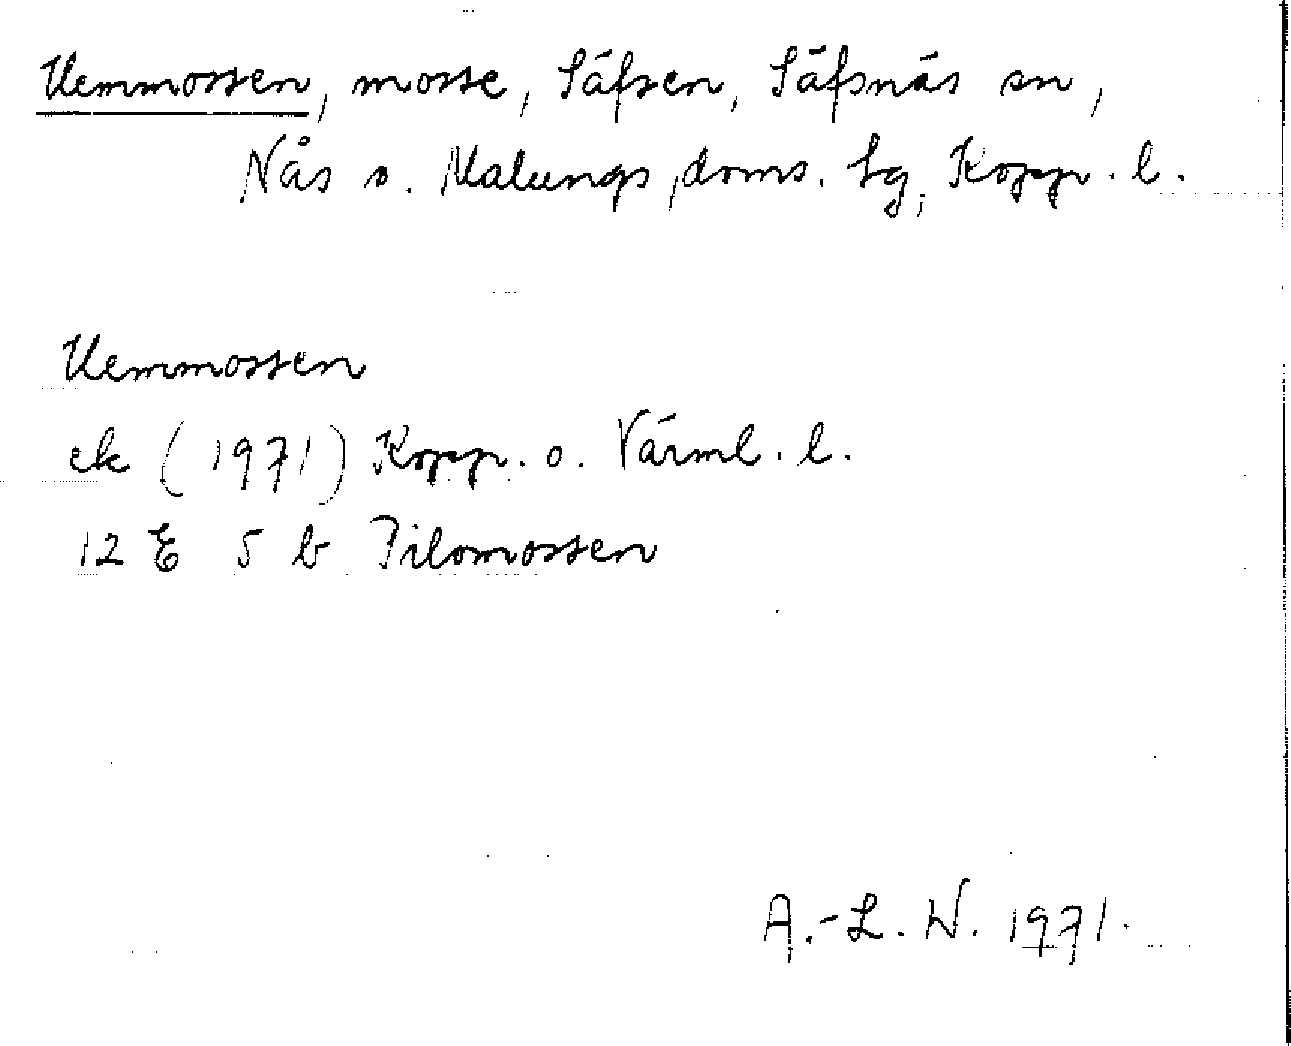 Uemmossen, mosse, Säfsen, Säfsnäs sn,
Nås o. Malungs doms. tg, Kopp. l.
Uemmossen
ek (1971) Kopp. o. Värml. l.
12 E 5 b Filomossen
A.-L. W. 1971.